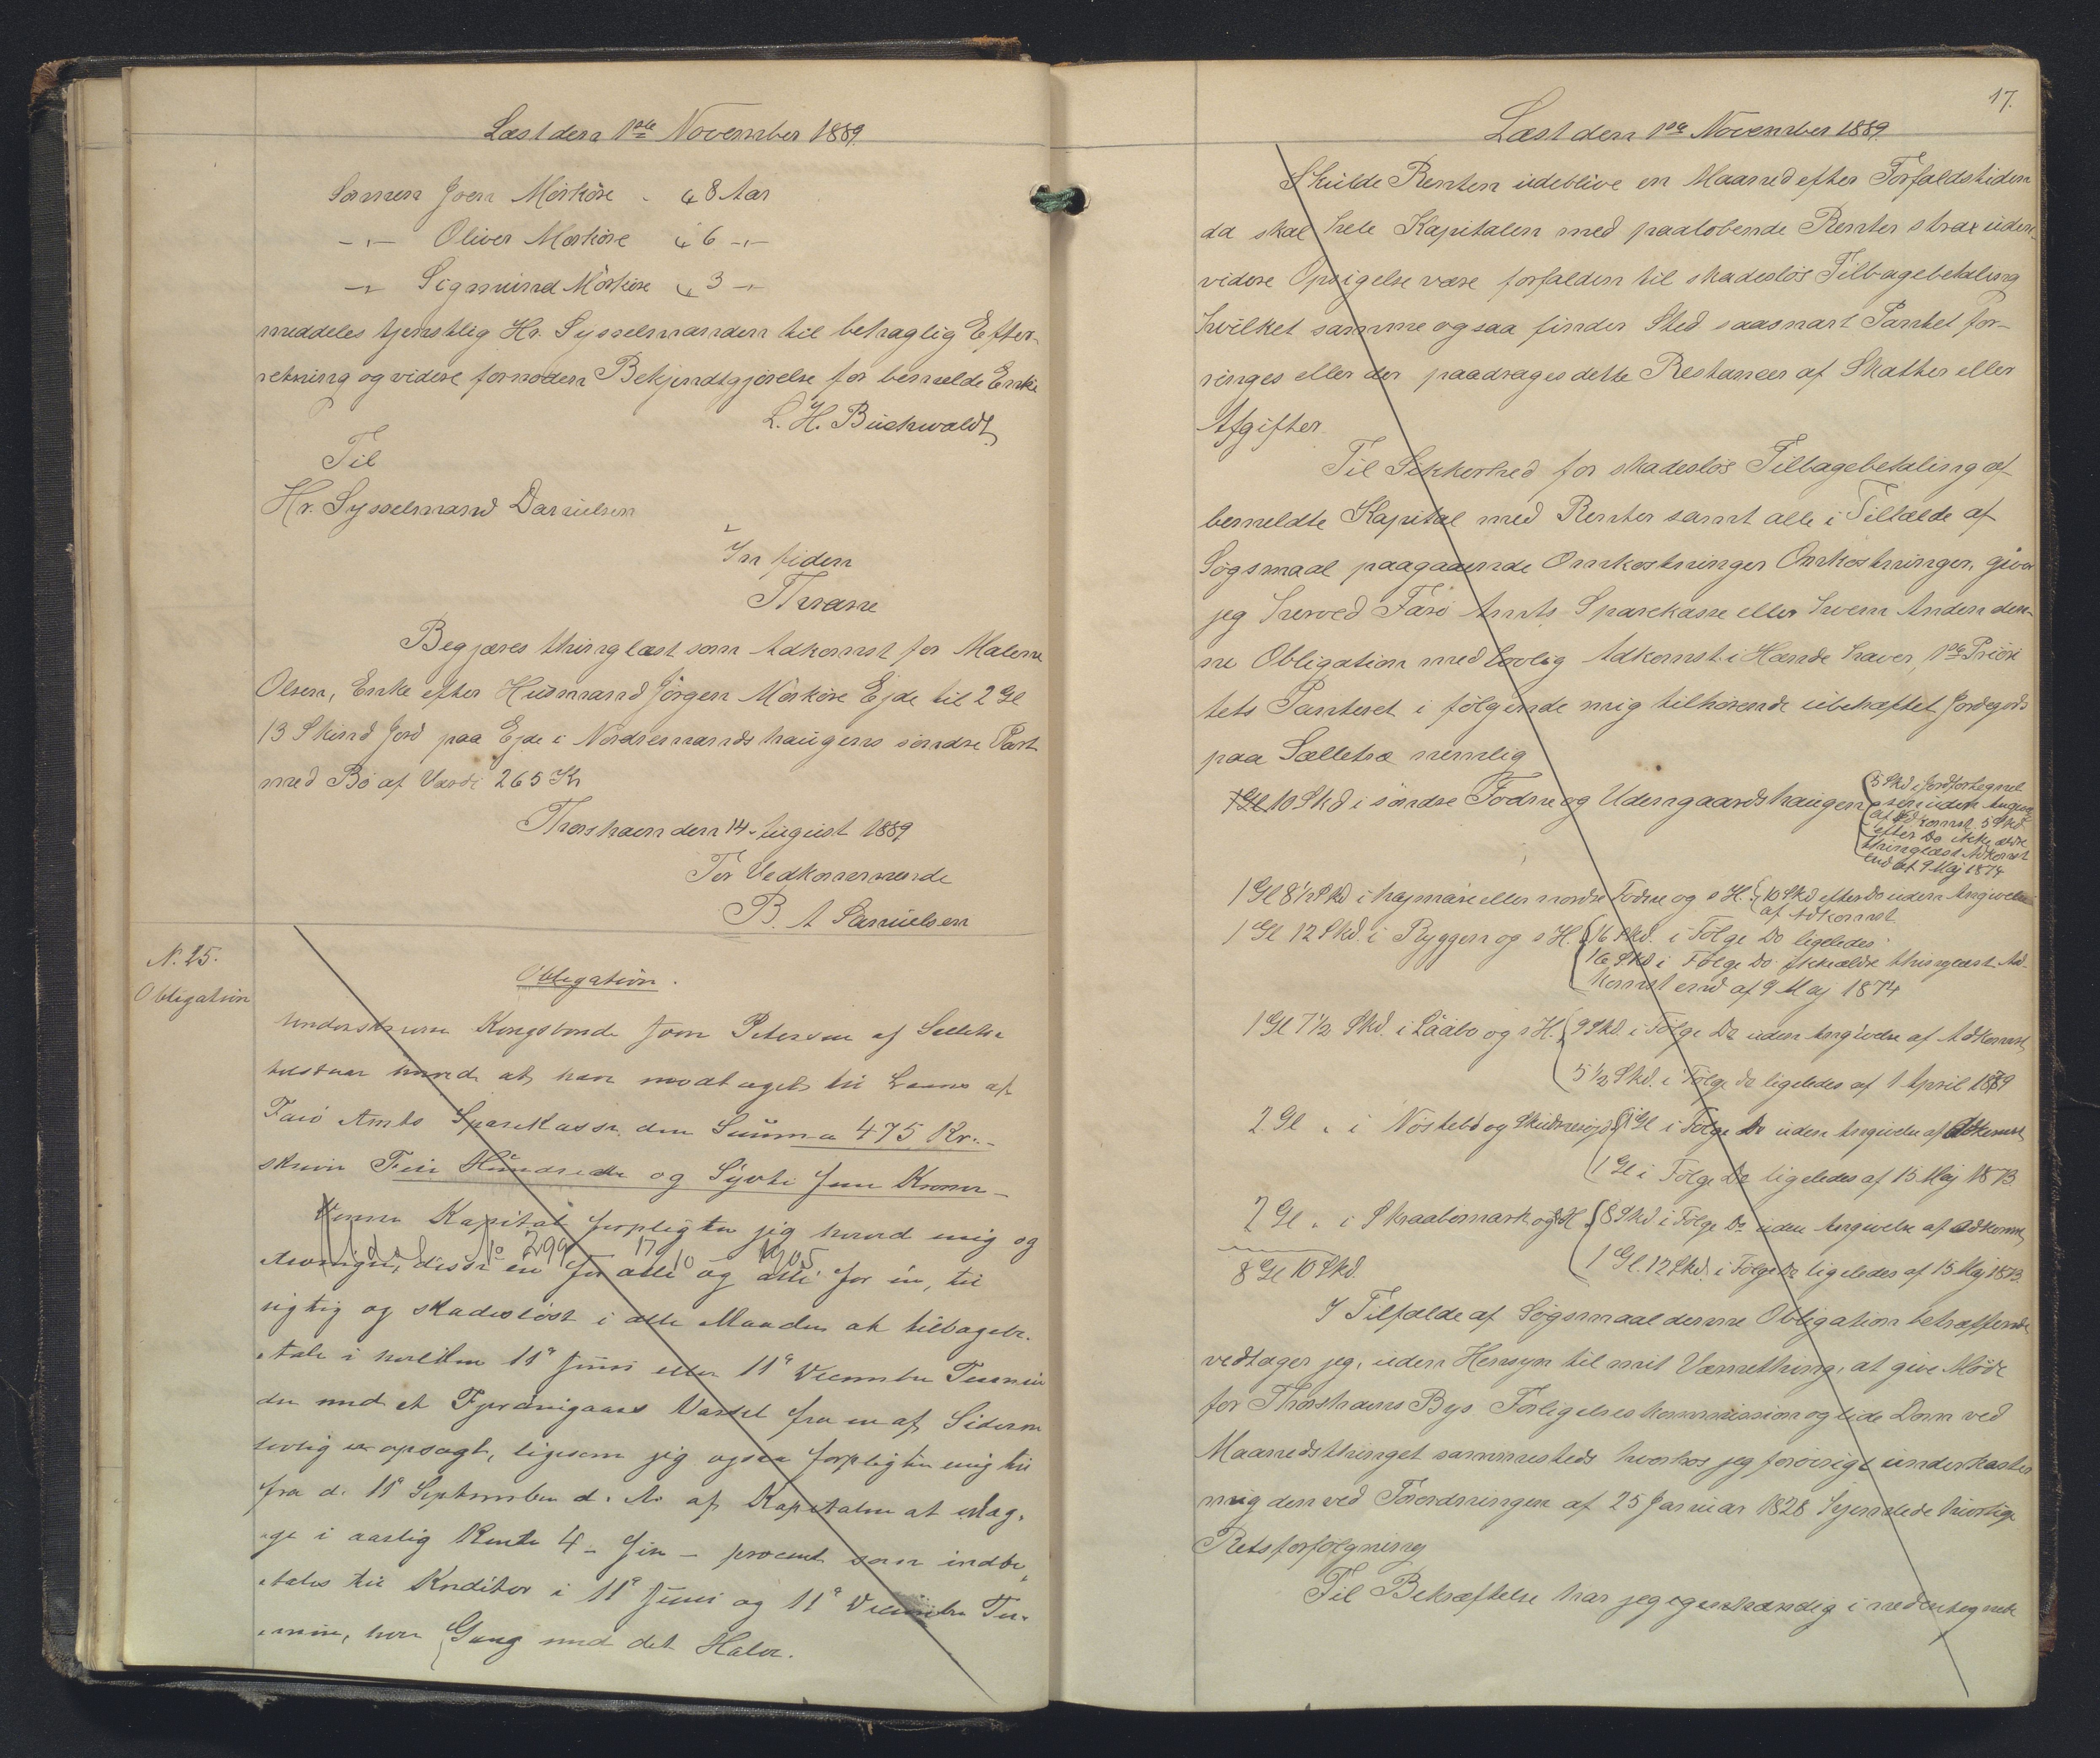 Læst den 1ste November 1889.
Sønnen Joen Mørkøre - 48 Aar
-"- Oliver Mørkøre 46 -"-
-"- Sigmund Mørkøre 43 -"-
meddeles tjenstlig Hr. Sysselmanden til behagelig Efter-
retning og videre fornøden Bekjendtgjørelse for bemeldte Enke
L. H. Buchwaldt
Til
Hr. Sysselmand Danielsen
In fidem
Thrane
Begjæres thinglæst som Adkomst for Malene
Olsen, Enke efter Husmand Jörgen Mörköre Ejde til 2 Gl
13 Skind Jord paa Ejde i Nordremandshaugens söndre Part
med Bö af Værdi 265 Kr
Thorshavn den 14. August 1889
For Vedkommende
B. A Samuelsen
N. 25.
Obligation
Obligation.
Underskrevne Kongsbonde Joen Petersen af Selletræ
tilstaar herved at have modtaget til Laans af
Færö Amts Sparekasse den Summa 475 Kr. -
skriver Fire Hundrede og Syvti fem Kroner -
Denne Kapital forpligter jeg herved mig og
Arvinger, disse en for alle og alle for en, til
Udsl. No 299 17/10 1905
rigtig og skadesløst i alle Maader at tilbagebe-
tale i hvilken 11e Juni eller 11e December Termin
den med et Fjerdingaars Varsel fra en af Siderne
lovlig er opsagt, ligesom jeg ogsaa forpligter mig til
fra d. 11e September d. A. af Kapitalen at erlæg-
ge i aarlig Rente 4 - fire - procent som indbe-
tales til Kreditor i 11e Juni og 11e December Ter-
min, hver Gang med det Halve.
17.
Læst den 1ste November 1889.
Skulde Renten udeblive en Maaned efter Forfaldstiden
da skal hele Kapitalen med paaløbende Renter strax uden
videre Opsigelse være forfalden til skadesløs Tilbagebetaling
hvilket samme ogsaa finder Sted saasnart Pantet for-
ringes eller der paadrages dette Restancer af Skatter eller
Afgifter.
Til Sikkerhed for skadesløs Tilbagebetaling af
bemeldte Kapital med Renter samt alle i Tilfælde af
Søgsmaal paagaaende Omkostninger Omkostninger, giver
jeg herved Færö Amts Sparekasse eller hvem Anden den-
ne Obligation med lovlig Adkomst i Hænde haver, 1ste Priori
tets Panteret i følgende mig tilhörende übehæftet Jordegods
paa Sælletræ nemlig
1 Gl 10 Skd i söndre Todne og Udengaardshaugen
5 Skd i Jordfortegnel
sen uden Angivelse
af Adkomst. 5 Skd
efter Do ikke ældre
thinglæst Adkomst
end af 9 Maj 1874
1 Gl 8 1/2 Skd i hajmare eller nordre Todne og s H. 10 Skd efter Do uden Angivelse
af Adkomst
1 Gl 12 Skd. i Ryggen og s H. 16 Skd. i Følge Do ligeledes
16 Skd i Følge Do ikke ældre thinglæst Ad-
komst end af 9 Maj 1874
1 Gl 7 1/2 Skd. i Lääbo og s H. 9 Skd. i Følge Do uden Angivelse af Adkomst
5 1/2 Skd. i Følge Do ligeledes af 1 April 1879
2 Gl " i Nöstebö og 1 Gl i Følge Do uden Angivelse af Adkomst
1 Gl i Følge Do ligeledes af 15 Maj 1873.
2 Gl " i Skraabomark og s H. 8 Skd i Følge Do uden Angivelse af Adkomst
1 Gl. 12 Skd. i Følge Do ligeledes af 15 Maj 1873.
8 Gl 10 Skd.
I Tilfælde af Søgsmaal denne Obligation betræffende
vedtager jeg, uden Hensyn til mit Værnething, at give Møde
for Thorshavns Bys Forligelseskommission og lide Dom ved
Maanedsthinget sammesteds hvorhos jeg forøvrigt underkaster
mig den ved Forordningen af 25 Januar 1828 hjemlede hurtige
Retsforfølgning
Til Bekræftelse har jeg egenhændig i nedentegnede